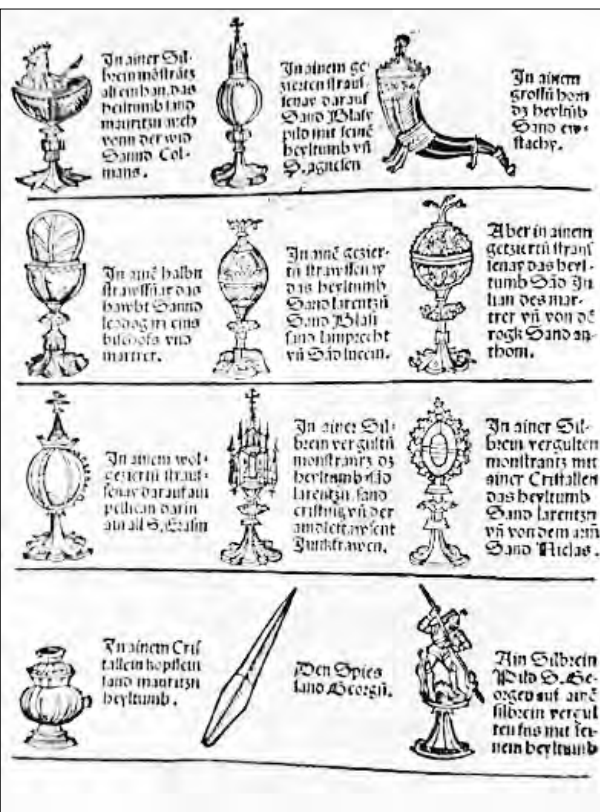 In ainer Sil-
brein monstrantz
als ein han, das
heyltumb sand
mauritzn auch
vonn der wid
Sannd Col-
mans.
In ainem ge-
zierten strauſ
senay darauf
Sand Blasy
pild mit seinē
heyltumb vñ
S. agnesen
In ainem
grossñ horn
dz heyltūb
Sand ew-
stachy.
In ainē halbn
strawssnar das
hawbt Sannd
eins
bischofs vnd
martrer.
In ainē gezier-
tñ strawssenay
das heyltumb
Sand larentzñ
Sand Blasi
sand lamprecht
vñ Sād lucein.
Aber in ainem
getziertñ strauſ
senay das heyl-
tumb Sād Ju-
lian des mar-
trer vñ von dē
rogk Sand an-
thoni.
In ainem wol-
gezierttñ strauſ-
senay darauf ain
pellican darin
S. Erasm
In ainer Sil-
brein vergultñ
monstrantz dz
heyltumb sād
larentzñ, sand
cristing vñ der
aindleftawsent
Junkfrawen.
In ainer Sil-
brein vergulten
monstrantz mit
ainer Cristallen
das heyltumb
Sand larentzn
vñ von dem arm
Sand Niclas.
In ainem Criſ
tallein hopflein
sand mauritzn
heyltumb.
Den Spies
sand Georgñ.
Ain Silbrein
Pild S. Ge-
orgen auf ainē
silbrein vergul
ten fus mit sei-
nem heyltumb